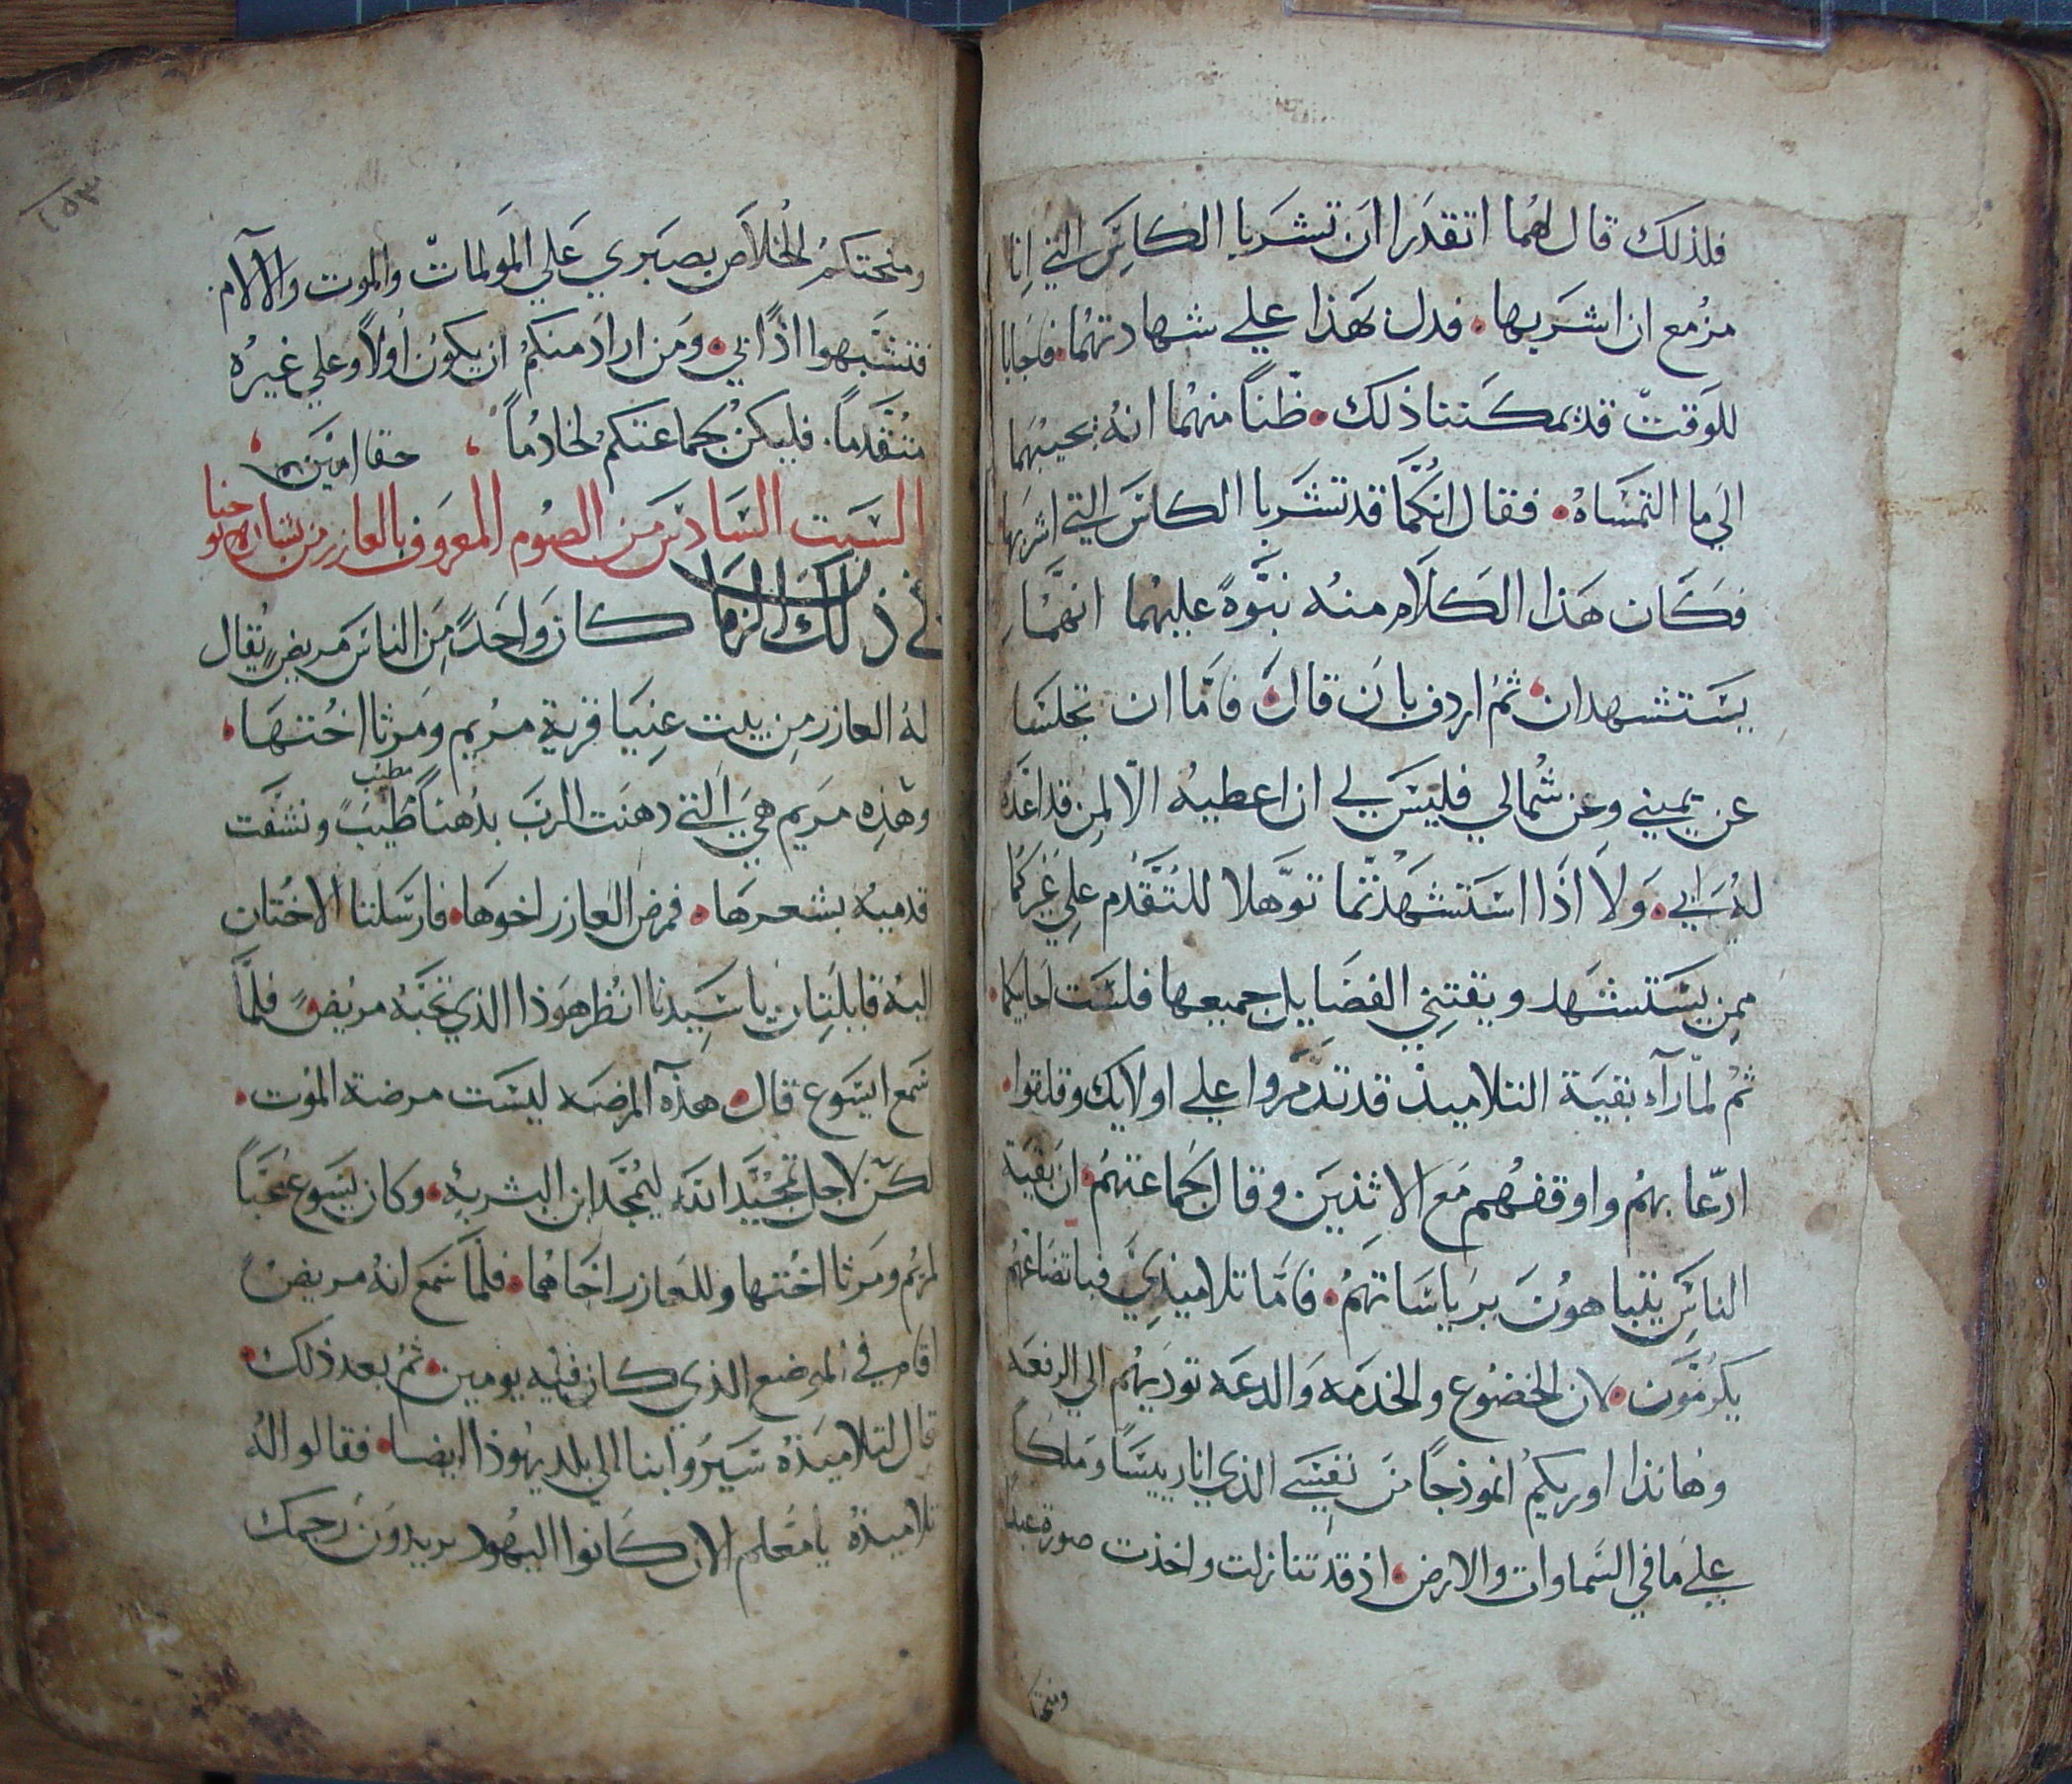 فلذلك قال لهما اتقدرا ان تشربا الكاس التي انا
مزمع ان اشربها. فدل بهذا علي شهادتهما. فاجابا
للوقت قد يمكننا ذلك. ظناً منهما انه يجيبهما
الي ما التمساه. فقال انكما قد تشربا الكاس التي اشربها
فكان هذا الكلام منه نبوةً عليهما انهما
يستشهدان. ثم اردف بان قال. فاما ان تجلسا
عن يميني وعن شمالي فليس لي ان اعطيه الا لمن قد اعده
له ابي. ولا اذا استشهدتما توهلا للتقدم علي غيركما
ممن يستشهد ويقتني الفضايل جميعها فلست احابيكما.
ثم لما راء بقية التلاميذ قد تذمروا علي اولايك وقلقوا.
ادعا بهم واوقفهم مع الاثنين. وقال لجماعتهم. ان بقية
الناس يتباهون برياساتهم. فاما تلاميذي فباتضاعهم
يكرمون. لان الخضوع والخدمه والدعه توديهم الي الرفعه
وهانذا اوريكم انموذجاً من نفسي الذي انا رييساً وملكاً
علي ما في السماوات والارض. اذ قد تنازلت واخذت صورة عبد
ومنحتكم
١٥٣
ومنحتكم الخلاص بصبري علي المولمات والموت والالام.
فتشبهوا اذاً بي. ومن اراد منكم ان يكون اولاً وعلي غيره
متقدماً. فليكن لجماعتكم خادماً حقا امين
السبت السادس من الصوم المعروف بالعازر من بشارة يوحنا
في ذلك الزمان كان واحدٌ من الناس مريضٍ يقال
له العازر من بيت عنيا قرية مريم ومرثا اختها.
مطيب
وهذه مريم هي التي دهنت الرب بدهناً طيب ونشفت
قدميه بشعرها. فمرض العازر اخوها. فارسلتا الاختان
اليه قايلتان يا سيدنا انظر هوذا الذي تحبه مريض. فلما
سمع ايسوع قال. هذه المرضه ليست مرضة الموت.
لكن لاجل تمجيد الله ليتمجد ابن البشر به. وكان يسوع محباً
لمريم ومرثا اختها وللعازر اخاهما. فلما سمع انه مريض
اقام في الموضع الذي كان فيه يومين. ثم بعد ذلك.
قال لتلاميذه سيروا بنا الي بلد يهوذا ايضا. فقالوا له
تلاميذه يا معلم الان كانوا اليهود يريدون رجمك